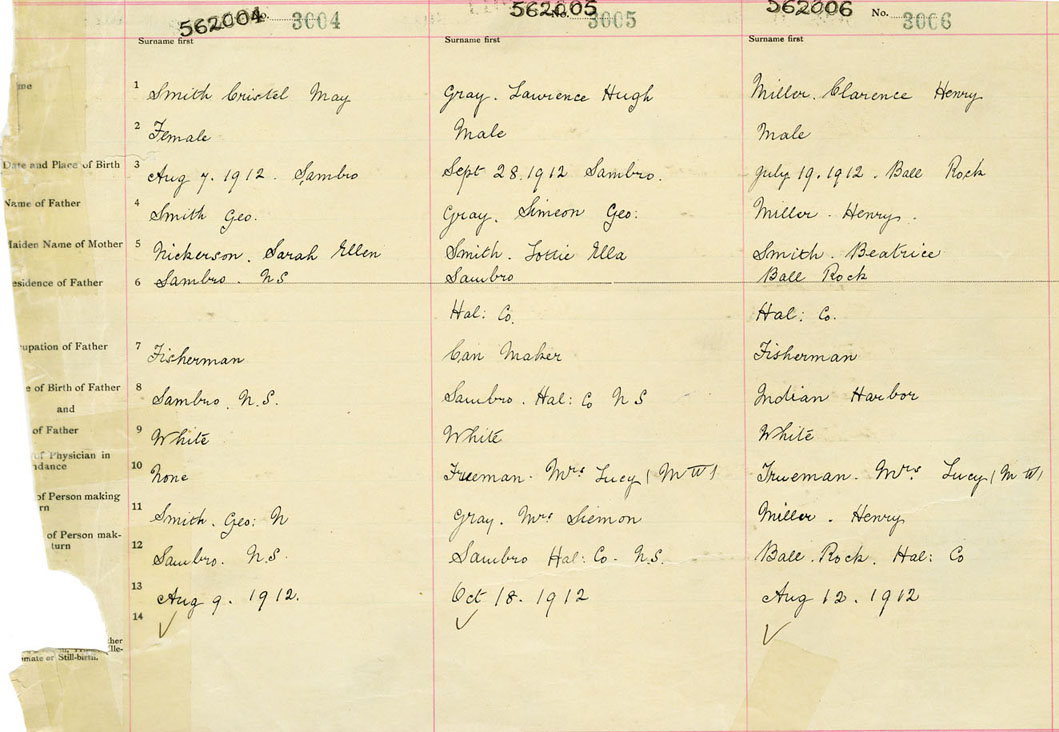 562004 No. 3004
562005 No. 3005
562006 No. 3006
Surname first
Surname first
Surname first
me
1 Smith Cristel May
Gray. Lawrence Hugh
Miller. Clarence Henry
2 Female
Male
Male
Date and Place of Birth
3 Aug 7. 1912. Sambro
Sept 28. 1912 Sambro.
July 19. 1912. Ball Rock
Name of Father
4 Smith Geo.
Gray. Simeon Geo:
Miller. Henry.
Maiden Name of Mother
5 Nickerson. Sarah Ellen
Smith. Lottie Ella
Smith. Beatrice
esidence of Father
6 Sambro. NS
Sambro
Ball Rock
Hal: Co.
Hal: Co.
upation of Father
7 Fisherman
Can Maker
Fisherman
e of Birth of Father
and
8 Sambro. N.S.
Sambro. Hal: Co N S
Indian Harbor
of Father
9 White
White
White
of Physician in
ndance
10 None
Freeman. Mrs Lucy (M W)
Trueman. Mrs. Lucy (M W)
of Person making
rn
11 Smith. Geo: N
Gray. Mrs Siemon
Miller. Henry
of Person mak-
turn
12 Sambro. N.S.
Sambro Hal: Co. N.S.
Ball. Rock. Hal: Co
13 Aug 9. 1912.
Oct 18. 1912
Aug 12. 1912
14 ✓
✓
✓
ther
Ille-
mate or Still-birth.